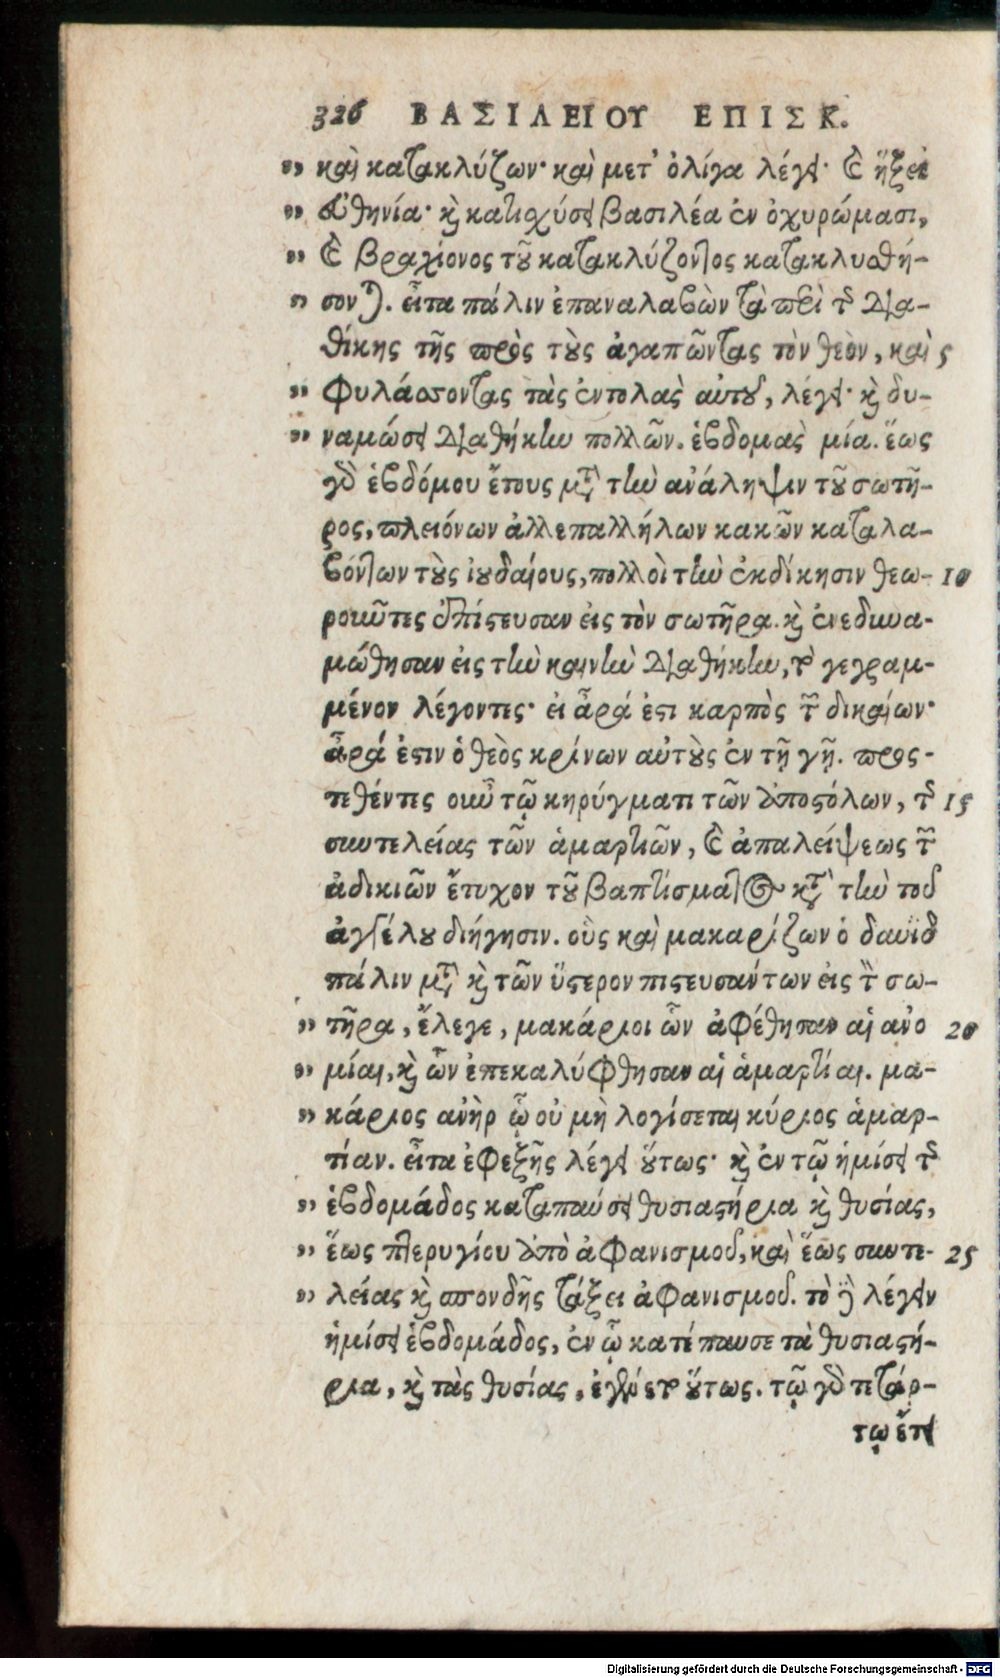 326 ΒΑΣΙΛΕΙΟΥ ΕΠΙΣΚ.
" καὶ κατακλύζων· καὶ μετ' ὀλίγα λέγει· καὶ ἥξει
" εὐθηνία· καὶ κατισχύσει βασιλέα ἐν ὀχυρώμασι,
" καὶ βραχίονος τοῦ κατακλύζοντος κατακλυσθή-
" σονται. εἶτα πάλιν ἐπαναλαβὼν τὰ περὶ τῆς δια-
θήκης τῆς πρὸς τοὺς ἀγαπῶντας τὸν θεὸν, καὶ 5
" φυλάσσοντας τὰς ἐντολὰς αὐτοῦ, λέγει· καὶ δυ-
" ναμώσει διαθήκην πολλῶν. ἑβδομὰς μία. ἕως
γὰρ ἑβδόμου ἔτους μετὰ τὴν ἀνάληψιν τοῦ σωτῆ-
ρος, πλειόνων ἀλλεπαλλήλων κακῶν καταλα-
βόντων τοὺς ἰουδαίους, πολλοὶ τὴν ἐκδίκησιν θεω- 10
ροῦντες ἐπίστευσαν εἰς τὸν σωτῆρα. καὶ ἐνεδυνα-
μώθησαν εἰς τὴν καινὴν διαθήκην, τὸ γεγραμ-
μένον λέγοντες· εἰ ἆρά ἐστι καρπὸς τῶν δικαίων·
ἆρά ἐστιν ὁ θεὸς κρίνων αὐτοὺς ἐν τῇ γῇ. προς-
τεθέντες οὖν τῷ κηρύγματι τῶν ἀποστόλων, τῆς 15
συντελείας τῶν ἁμαρτιῶν, καὶ ἀπαλείψεως τῶν
ἀδικιῶν ἔτυχον τοῦ βαπτίσματος κατὰ τὴν τοῦ
ἀγγέλου διήγησιν. οὓς καὶ μακαρίζων ὁ δαυῒδ
πάλιν μετὰ καὶ τῶν ὕστερον πιστευσάντων εἰς τὸν σω-
" τῆρα, ἔλεγε, μακάριοι ὧν ἀφέθησαν αἱ ἀνο 20
" μίαι, καὶ ὧν ἐπεκαλύφθησαν αἱ ἁμαρτίαι. μα-
" κάριος ἀνὴρ ᾧ οὐ μὴ λογίσεται κύριος ἁμαρ-
τίαν. εἶτα ἐφεξῆς λέγει οὕτως· καὶ ἐν τῷ ἡμίσει τῆς
" ἑβδομάδος καταπαύσει θυσιαστήρια καὶ θυσίας,
" ἕως πτερυγίου ἀπὸ ἀφανισμοῦ, καὶ ἕως συντε- 25
" λείας καὶ σπονδῆς τάξει ἀφανισμοῦ. τὸ δὲ λέγειν
ἡμίσει ἑβδομάδος, ἐν ᾧ κατέπαυσε τὰ θυσιαστή-
ρια, καὶ τὰς θυσίας, ἐγένετο οὕτως. τῷ γὰρ τετάρ-
τῳ ἔτει
Digitalisierung gefördert durch die Deutsche Forschungsgemeinschaft - DFG